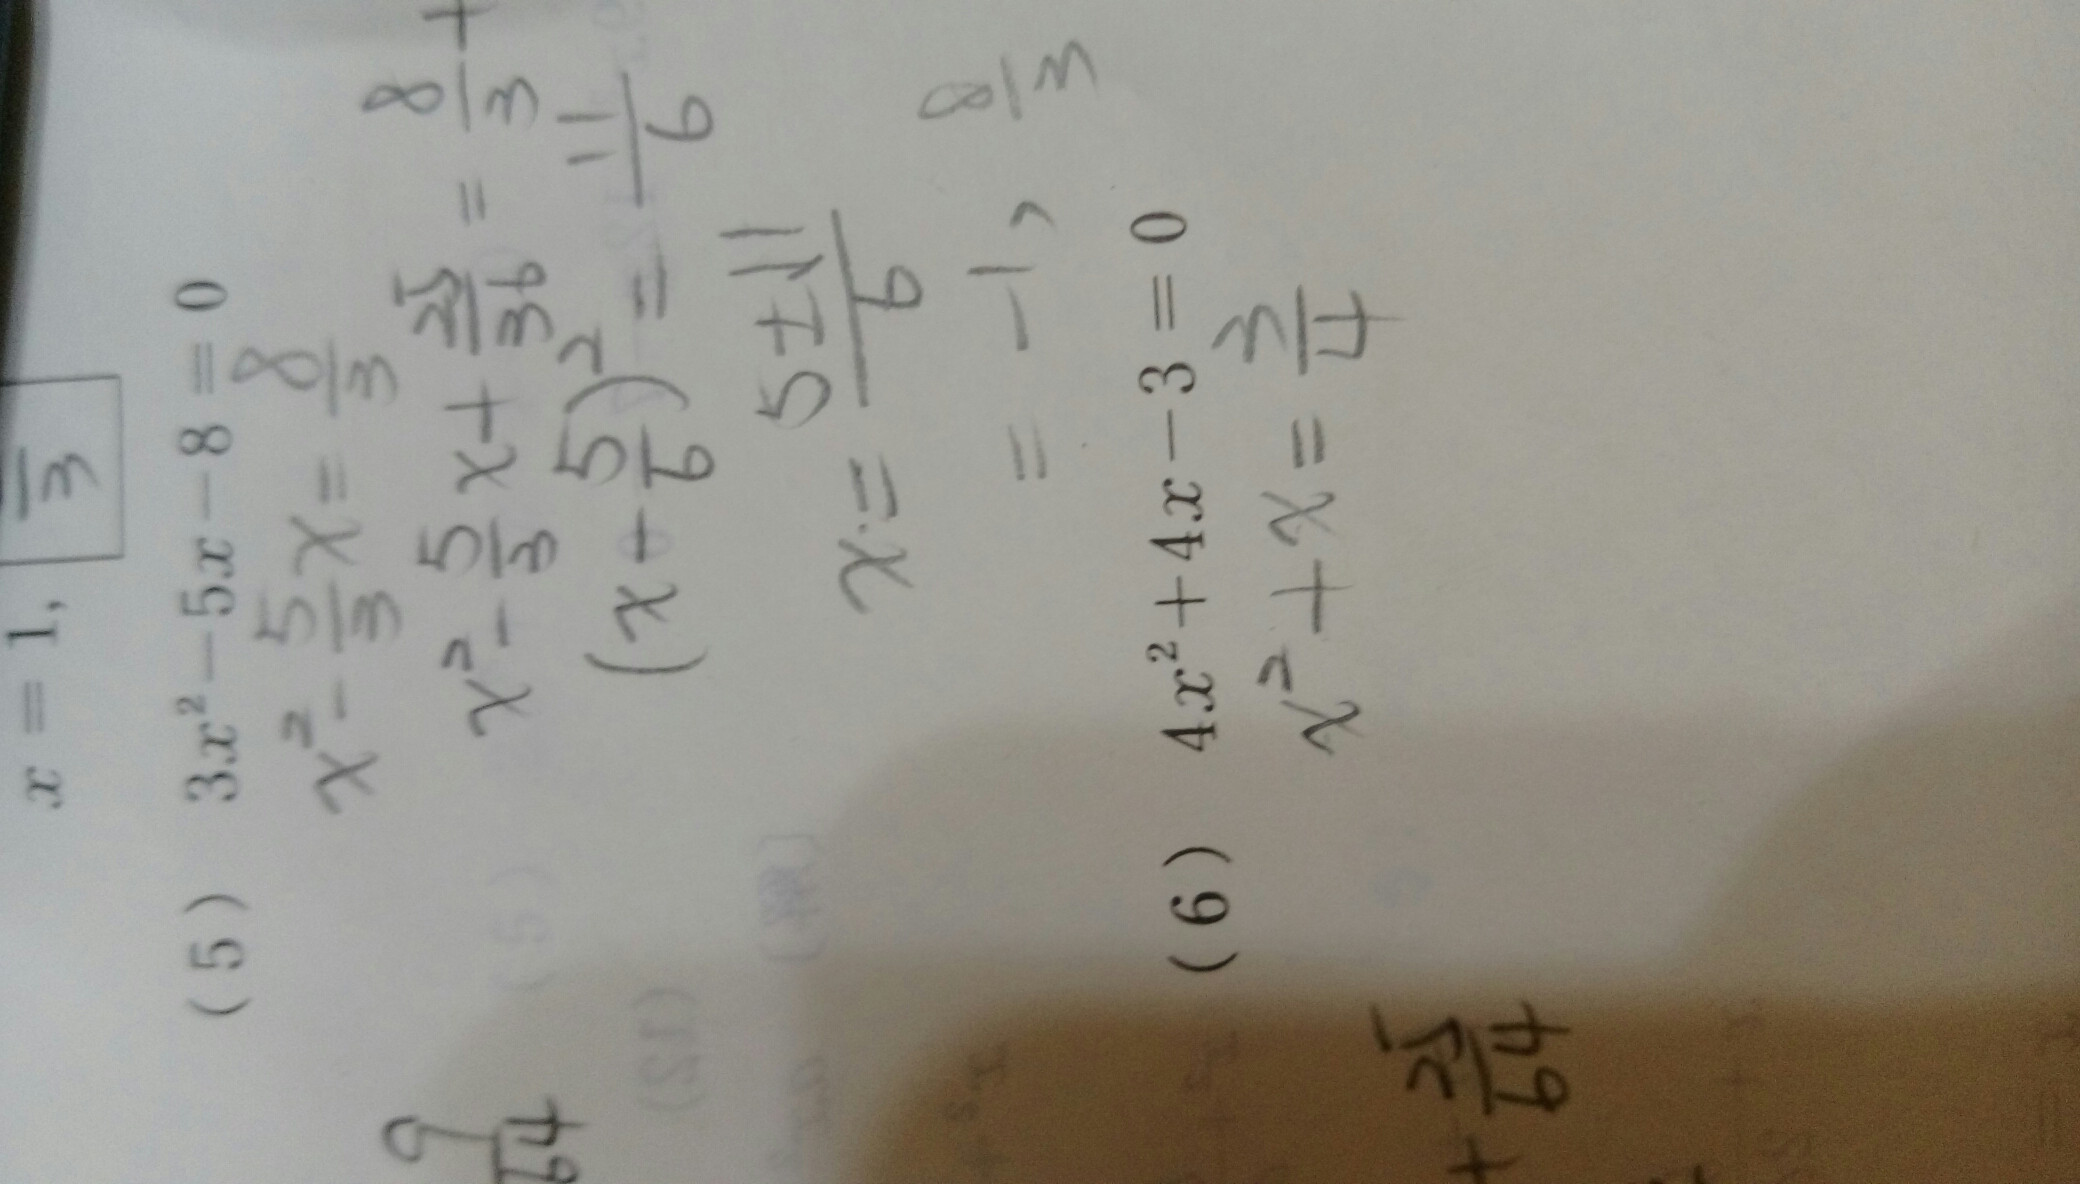 x = 1, 3
(5) 3x² - 5x - 8 = 0
x² - 5/3 x = 8/3
x² - 5/3 x + 25/36 = 8/3 +
(x - 5/6)² = 11/6
x = 5±11/6
= -1, 8/3
(6) 4x² + 4x - 3 = 0
x² + x = 3/4
9/64
+ 25/64